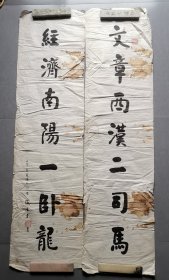 文章西漢二司馬
經濟南陽一卧龍